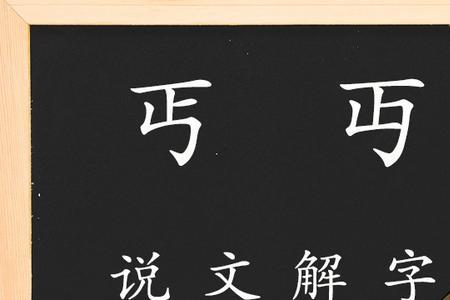 丐 丏
说文解字